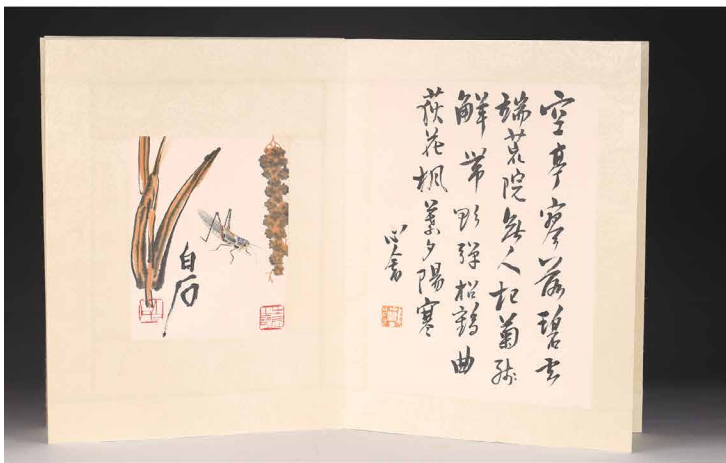 空亭寥落碧云
端荒院無人杞菊殘
解帶臥彈松鶴曲
荻花楓葉夕陽寒
心畬
白石